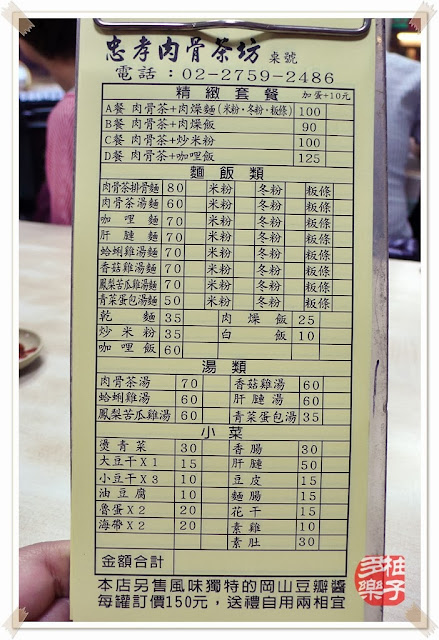 忠孝肉骨茶坊 桌號
電話：02-2759-2486
精緻套餐 加蛋+10元
A餐 肉骨茶+肉燥麵(米粉·冬粉·粄條) 100
B餐 肉骨茶+肉燥飯 90
C餐 肉骨茶+炒米粉 100
D餐 肉骨茶+咖哩飯 125
麵飯類
肉骨茶排骨麵 80 米粉 冬粉 粄條
肉骨茶湯麵 70 米粉 冬粉 粄條
咖哩麵 70 米粉 冬粉 粄條
肝腱麵 70 米粉 冬粉 粄條
蛤蜊雞湯麵 70 米粉 冬粉 粄條
香菇雞湯麵 70 米粉 冬粉 粄條
鳳梨苦瓜雞湯麵 70 米粉 冬粉 粄條
青菜蛋包湯麵 50 米粉 冬粉 粄條
乾麵 35 肉燥飯 25
炒米粉 35 白飯 10
咖哩飯 60
湯類
肉骨茶湯 70 香菇雞湯 60
蛤蜊雞湯 60 肝腱湯 60
鳳梨苦瓜雞湯 60 青菜蛋包湯 35
小菜
燙青菜 30 香腸 30
大豆干X1 15 肝腱 50
小豆干X3 10 豆皮 15
油豆腐 10 麵腸 15
魯蛋X2 20 花干 15
海帶X2 20 素雞 10
素肚 30
金額合計
本店另售風味獨特的岡山豆瓣醬
每罐訂價150元，送禮自用兩相宜
柚子多樂